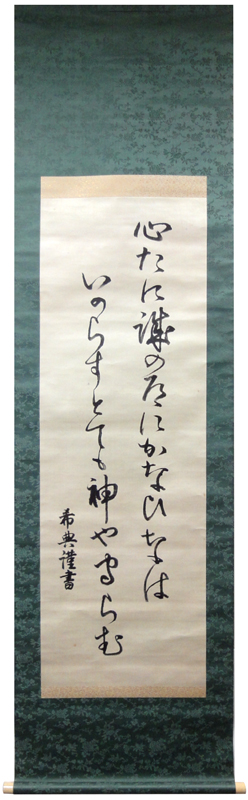 心たに誠の道にかなひなは
いのらすとても神や守らむ
希典謹書